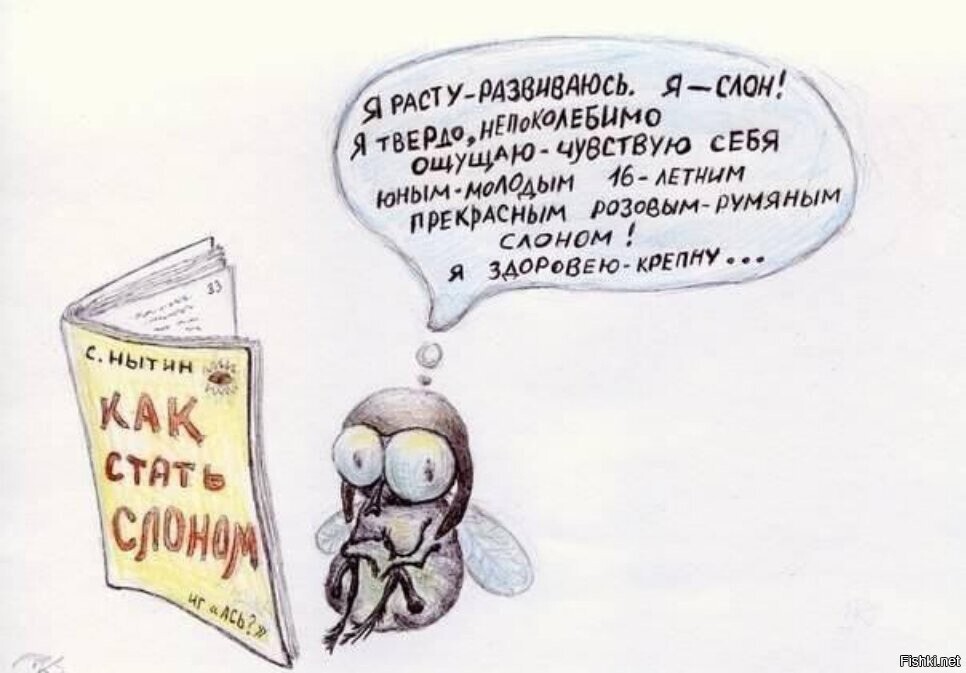 Я РАСТУ-РАЗВИВАЮСЬ. Я — СЛОН!
Я ТВЕРДО, НЕПОКОЛЕБИМО
ОЩУЩАЮ-ЧУВСТВУЮ СЕБЯ
ЮНЫМ-МОЛОДЫМ 16-ЛЕТНИМ
ПРЕКРАСНЫМ РОЗОВЫМ-РУМЯНЫМ
СЛОНОМ!
Я ЗДОРОВЕЮ-КРЕПНУ...
33
С. НЫТИН
КАК
СТАТЬ
СЛОНОМ
ИГ «АСЬ?»
Fishki.net